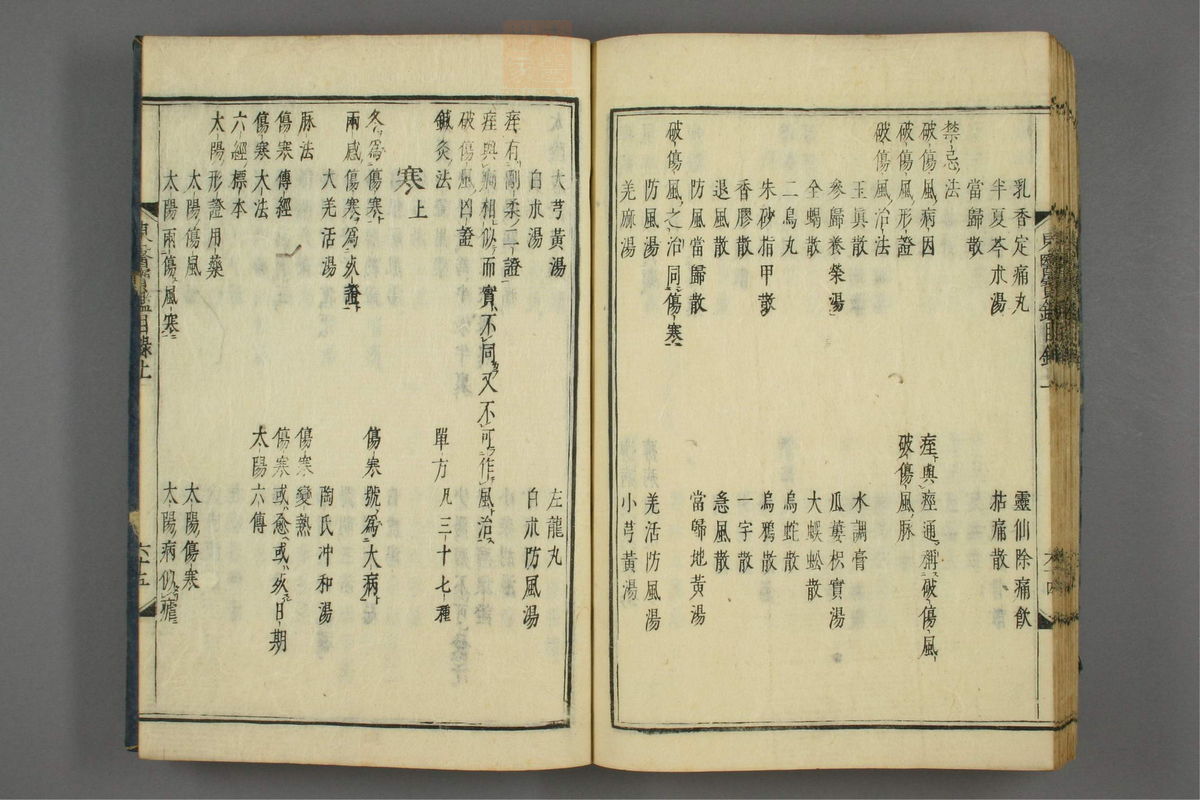 乳香定痛丸　靈仙除痛飲
半夏芩朮湯　拈痛散
當歸散
禁忌法
破傷風病因　痓與痙通稱破傷風
破傷風形證　破傷風脉
破傷風治法　水調膏
玉眞散　瓜蔞枳實湯
參歸養榮湯　大蜈蚣散
全蝎散　烏蛇散
二烏丸　烏鴉散
朱砂指甲散　一字散
香膠散　急風散
退風散
防風當歸散　當歸地黃湯
破傷風之治同傷寒
防風湯　羌活防風湯
羌麻湯　小芎黃湯
東醫寶鑑目錄上　六十四
大芎黃湯　左龍丸
白朮湯　白朮防風湯
痓有剛柔二證
痓與癎相似而實不同又不可作風治
破傷風凶證
鍼灸法　單方凡三十七種
寒上
冬爲傷寒　傷寒號爲大病
兩感傷寒爲死證
大羌活湯　陶氏冲和湯
脉法　傷寒變熱
傷寒傳經　傷寒或愈或死日期
傷寒大法　太陽六傳
六經標本
太陽形證用藥
太陽傷風　太陽傷寒
太陽兩傷風寒　太陽病似瘧
東醫寶鑑目錄上　六十五